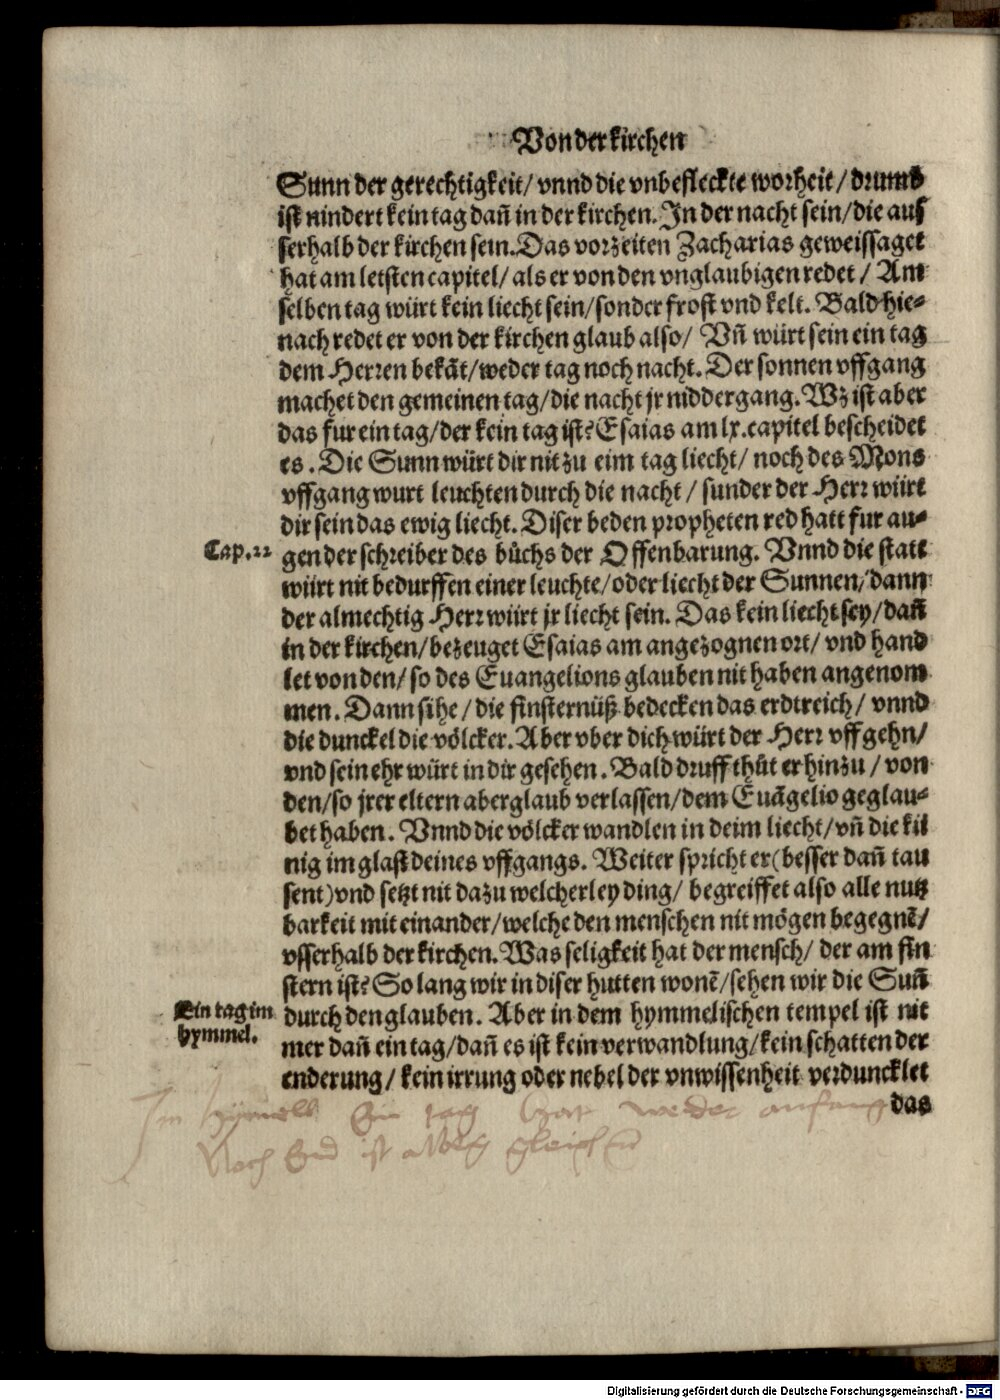 Von der kirchen
Sunn der gerechtigkeit/ vnnd die vnbefleckte worheit/ drumb
ist nindert kein tag dañ in der kirchen. In der nacht sein/ die auſ
serhalb der kirchen sein. Das vorzeiten Zacharias geweissaget
hat am letsten capitel/ als er von den vnglaubigen redet/ Am
selben tag würt kein liecht sein/ sonder frost vnd kelt. Bald hie-
nach redet er von der kirchen glaub also/ Vñ würt sein ein tag
dem Herren bekãt/ weder tag noch nacht. Der sonnen vffgang
machet den gemeinen tag/ die nacht jr niddergang. Wz ist aber
das fur ein tag/ der kein tag ist? Esaias am lx. capitel bescheidet
es. Die Sunn würt dir nit zu eim tag liecht/ noch des Mons
vffgang wurt leuchten durch die nacht/ sunder der Herr würt
dir sein das ewig liecht. Diser beden propheten red hatt fur au-
Cap. 22 gen der schreiber des bůchs der Offenbarung. Vnnd die statt
würt nit bedurffen einer leuchte/ oder liecht der Sunnen/ dann
der almechtig Herr würt jr liecht sein. Das kein liecht sey/ dañ
in der kirchen/ bezeuget Esaias am angezognen ort/ vnd hand
let von den/ so des Euangelions glauben nit haben angenom
men. Dann sihe/ die finsternüß bedecken das erdtreich/ vnnd
die dunckel die völcker. Aber vber dich würt der Herr vffgehn/
vnd sein ehr würt in dir gesehen. Bald druff thůt er hinzu/ von
den/ so jrer eltern aberglaub verlassen/ dem Euãgelio geglau-
bet haben. Vnnd die völcker wandlen in deim liecht/ vñ die kü
nig im glast deines vffgangs. Weiter spricht er (besser dañ tau
sent) vnd setzt nit dazu welcherley ding/ begreiffet also alle nutz
barkeit mit einander/ welche den menschen nit mögen begegnẽ/
vsserhalb der kirchen. Was seligkeit hat der mensch/ der am fin
stern ist? So lang wir in diser hutten wonẽ/ sehen wir die Suñ
Ein tag im durch den glauben. Aber in dem hymmelischen tempel ist nit
hymmel. mer dañ ein tag/ dañ es ist kein verwandlung/ kein schatten der
enderung/ kein irrung oder nebel der vnwissenheit verduncklet
das
Im hymell Ein tag hat weder anfang
Noch End ist alweg gleich